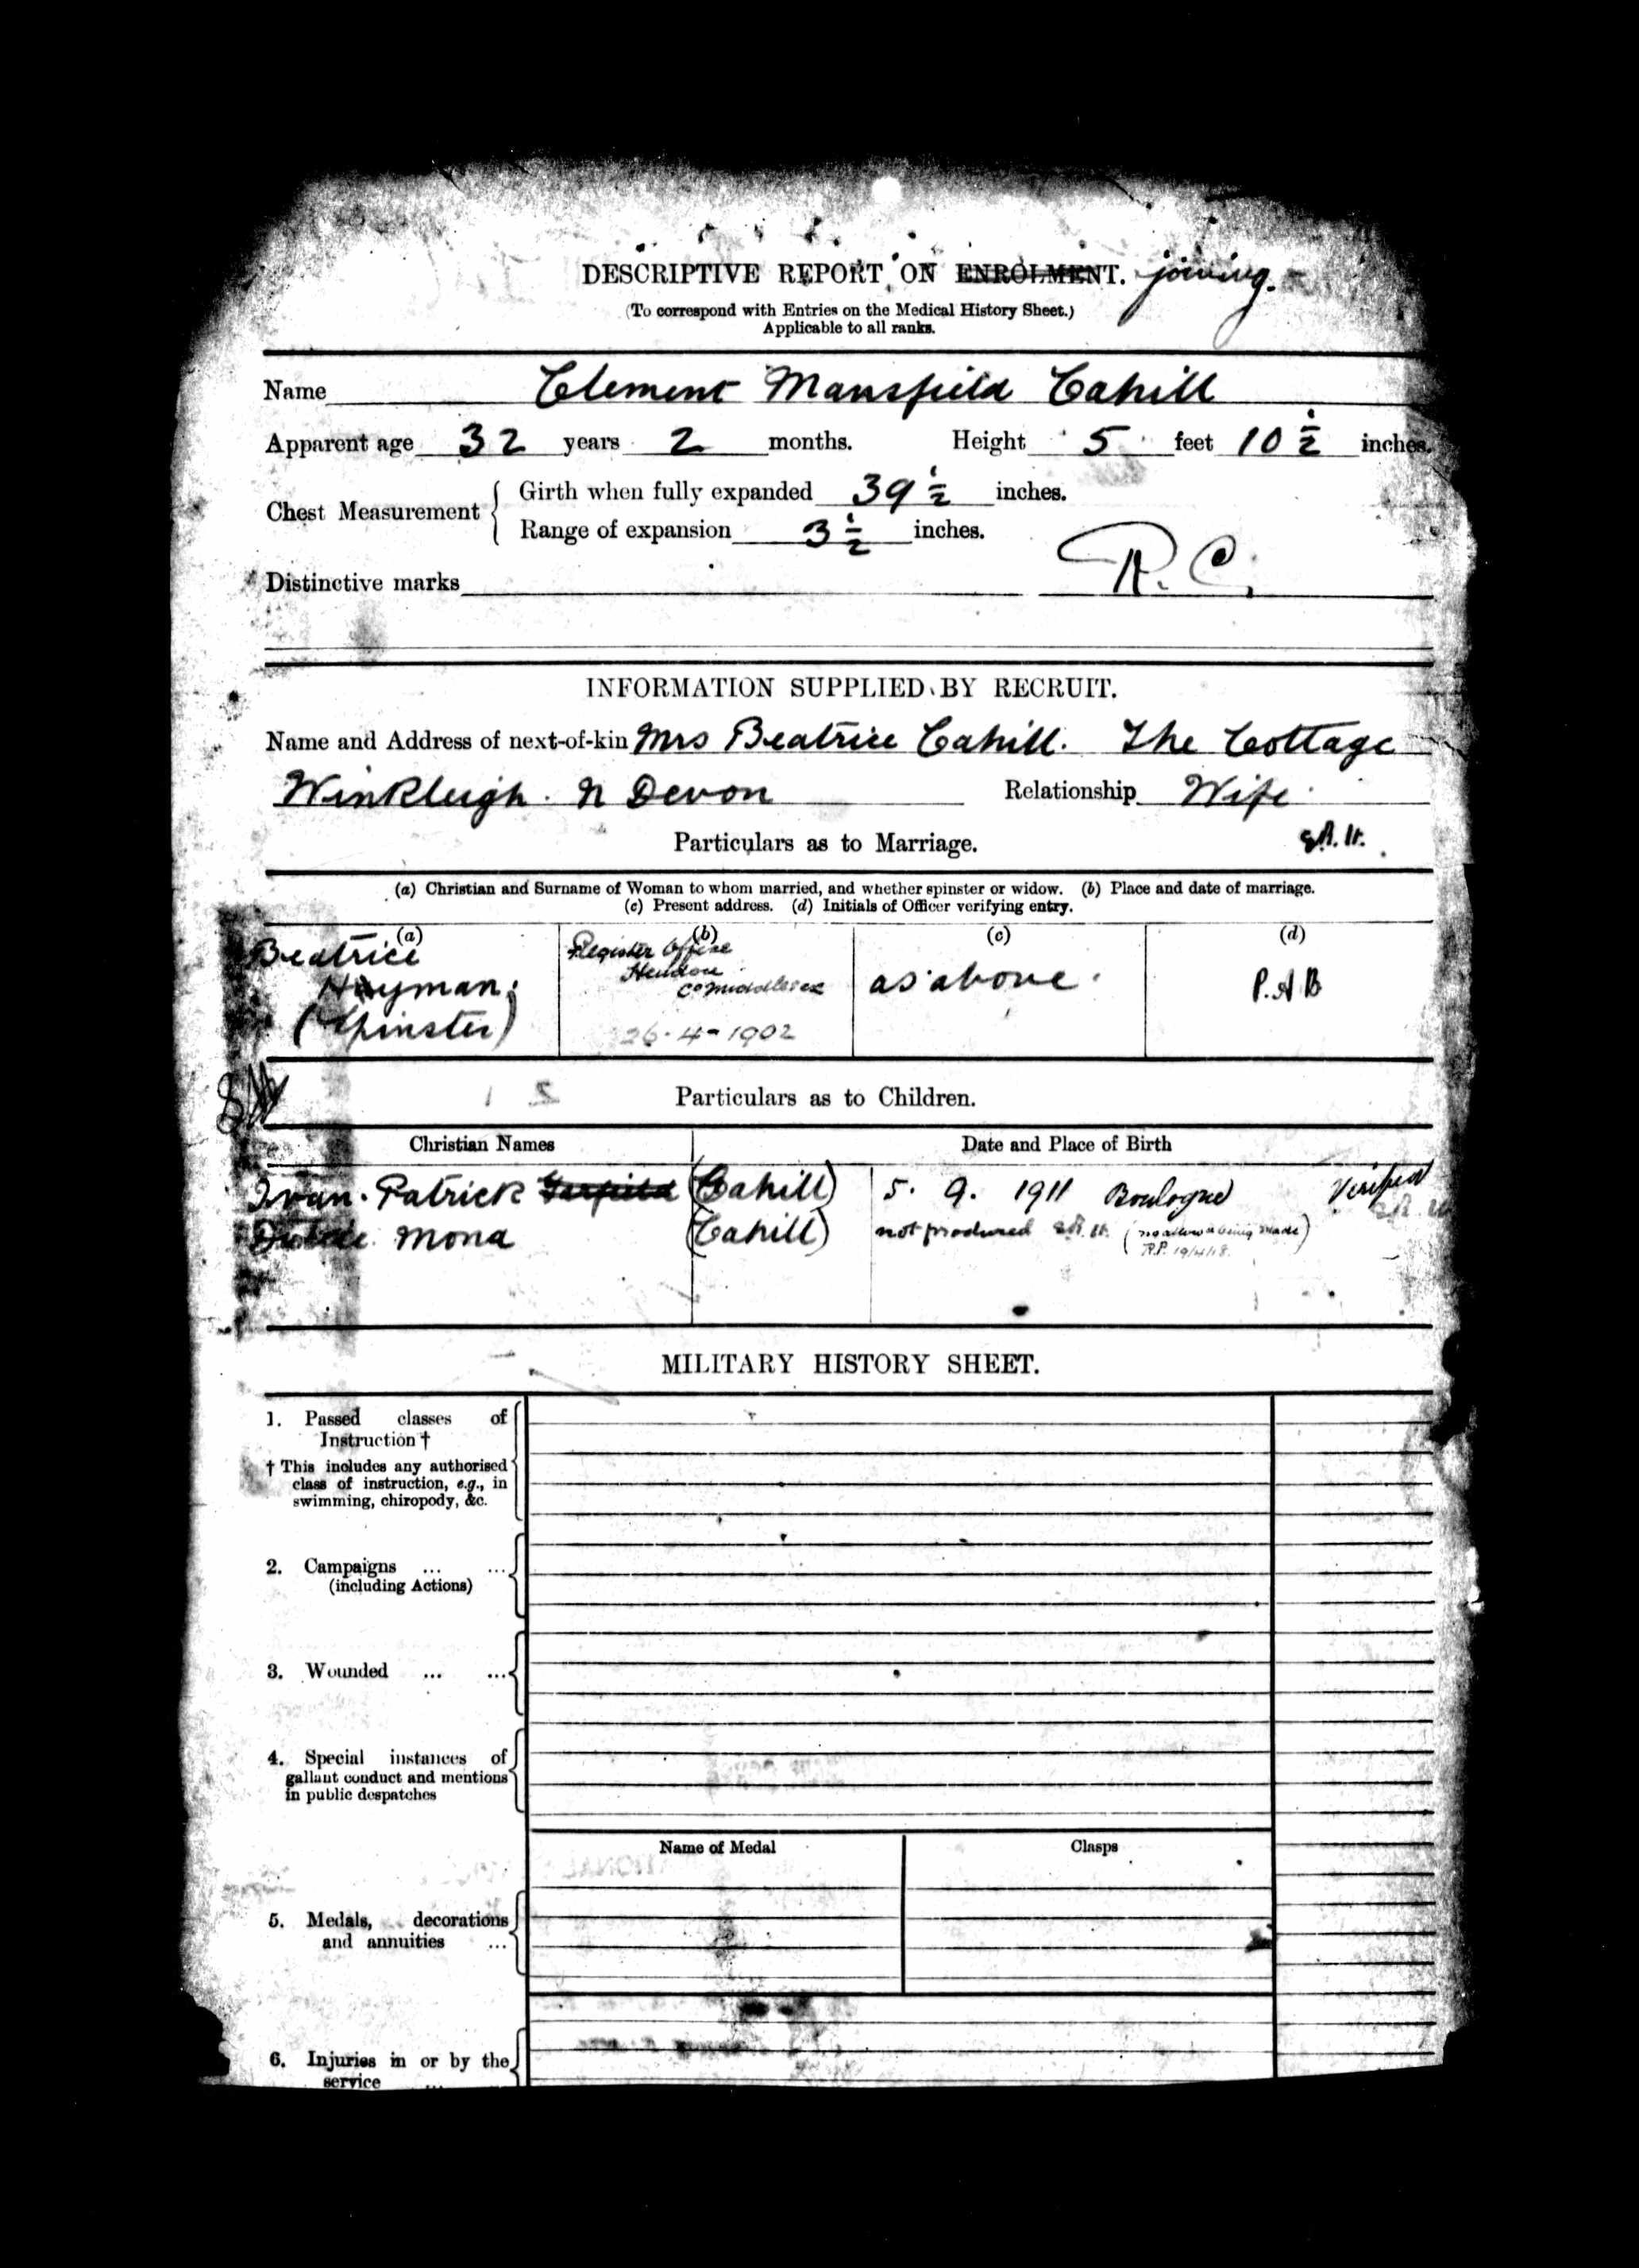 DESCRIPTIVE REPORT ON ENROLMENT. joining.
(To correspond with Entries on the Medical History Sheet.)
Applicable to all ranks.
Name Clement Mansfield Cahill
Apparent age 32 years 2 months. Height 5 feet 10 1/2 inches.
Chest Measurement { Girth when fully expanded 39 1/2 inches.
Range of expansion 3 1/2 inches.
Distinctive marks R.C.
INFORMATION SUPPLIED BY RECRUIT.
Name and Address of next-of-kin Mrs Beatrice Cahill. The Cottage
Winkleigh. N Devon Relationship Wife
Particulars as to Marriage.
(a) Christian and Surname of Woman to whom married, and whether spinster or widow. (b) Place and date of marriage.
(c) Present address. (d) Initials of Officer verifying entry.
(a) (b) (c) (d)
Beatrice Register Office
Hayman. Hendon as above. P.A B
Co Middlesex
(Spinster) 26-4-1902
Particulars as to Children.
Christian Names Date and Place of Birth
Ivan. Patrick Garfield (Cahill) 5. 9. 1911 Boulogne Verified
Mona (Cahill) not produced (no allow being made)
R.P. 19/4/18.
MILITARY HISTORY SHEET.
1. Passed classes of
Instruction †
† This includes any authorised
class of instruction, e.g., in
swimming, chiropody, &c.
2. Campaigns ... ...
(including Actions)
3. Wounded ... ...
4. Special instances of
gallant conduct and mentions
in public despatches
Name of Medal Clasps
5. Medals, decorations
and annuities ...
6. Injuries in or by the
service ...